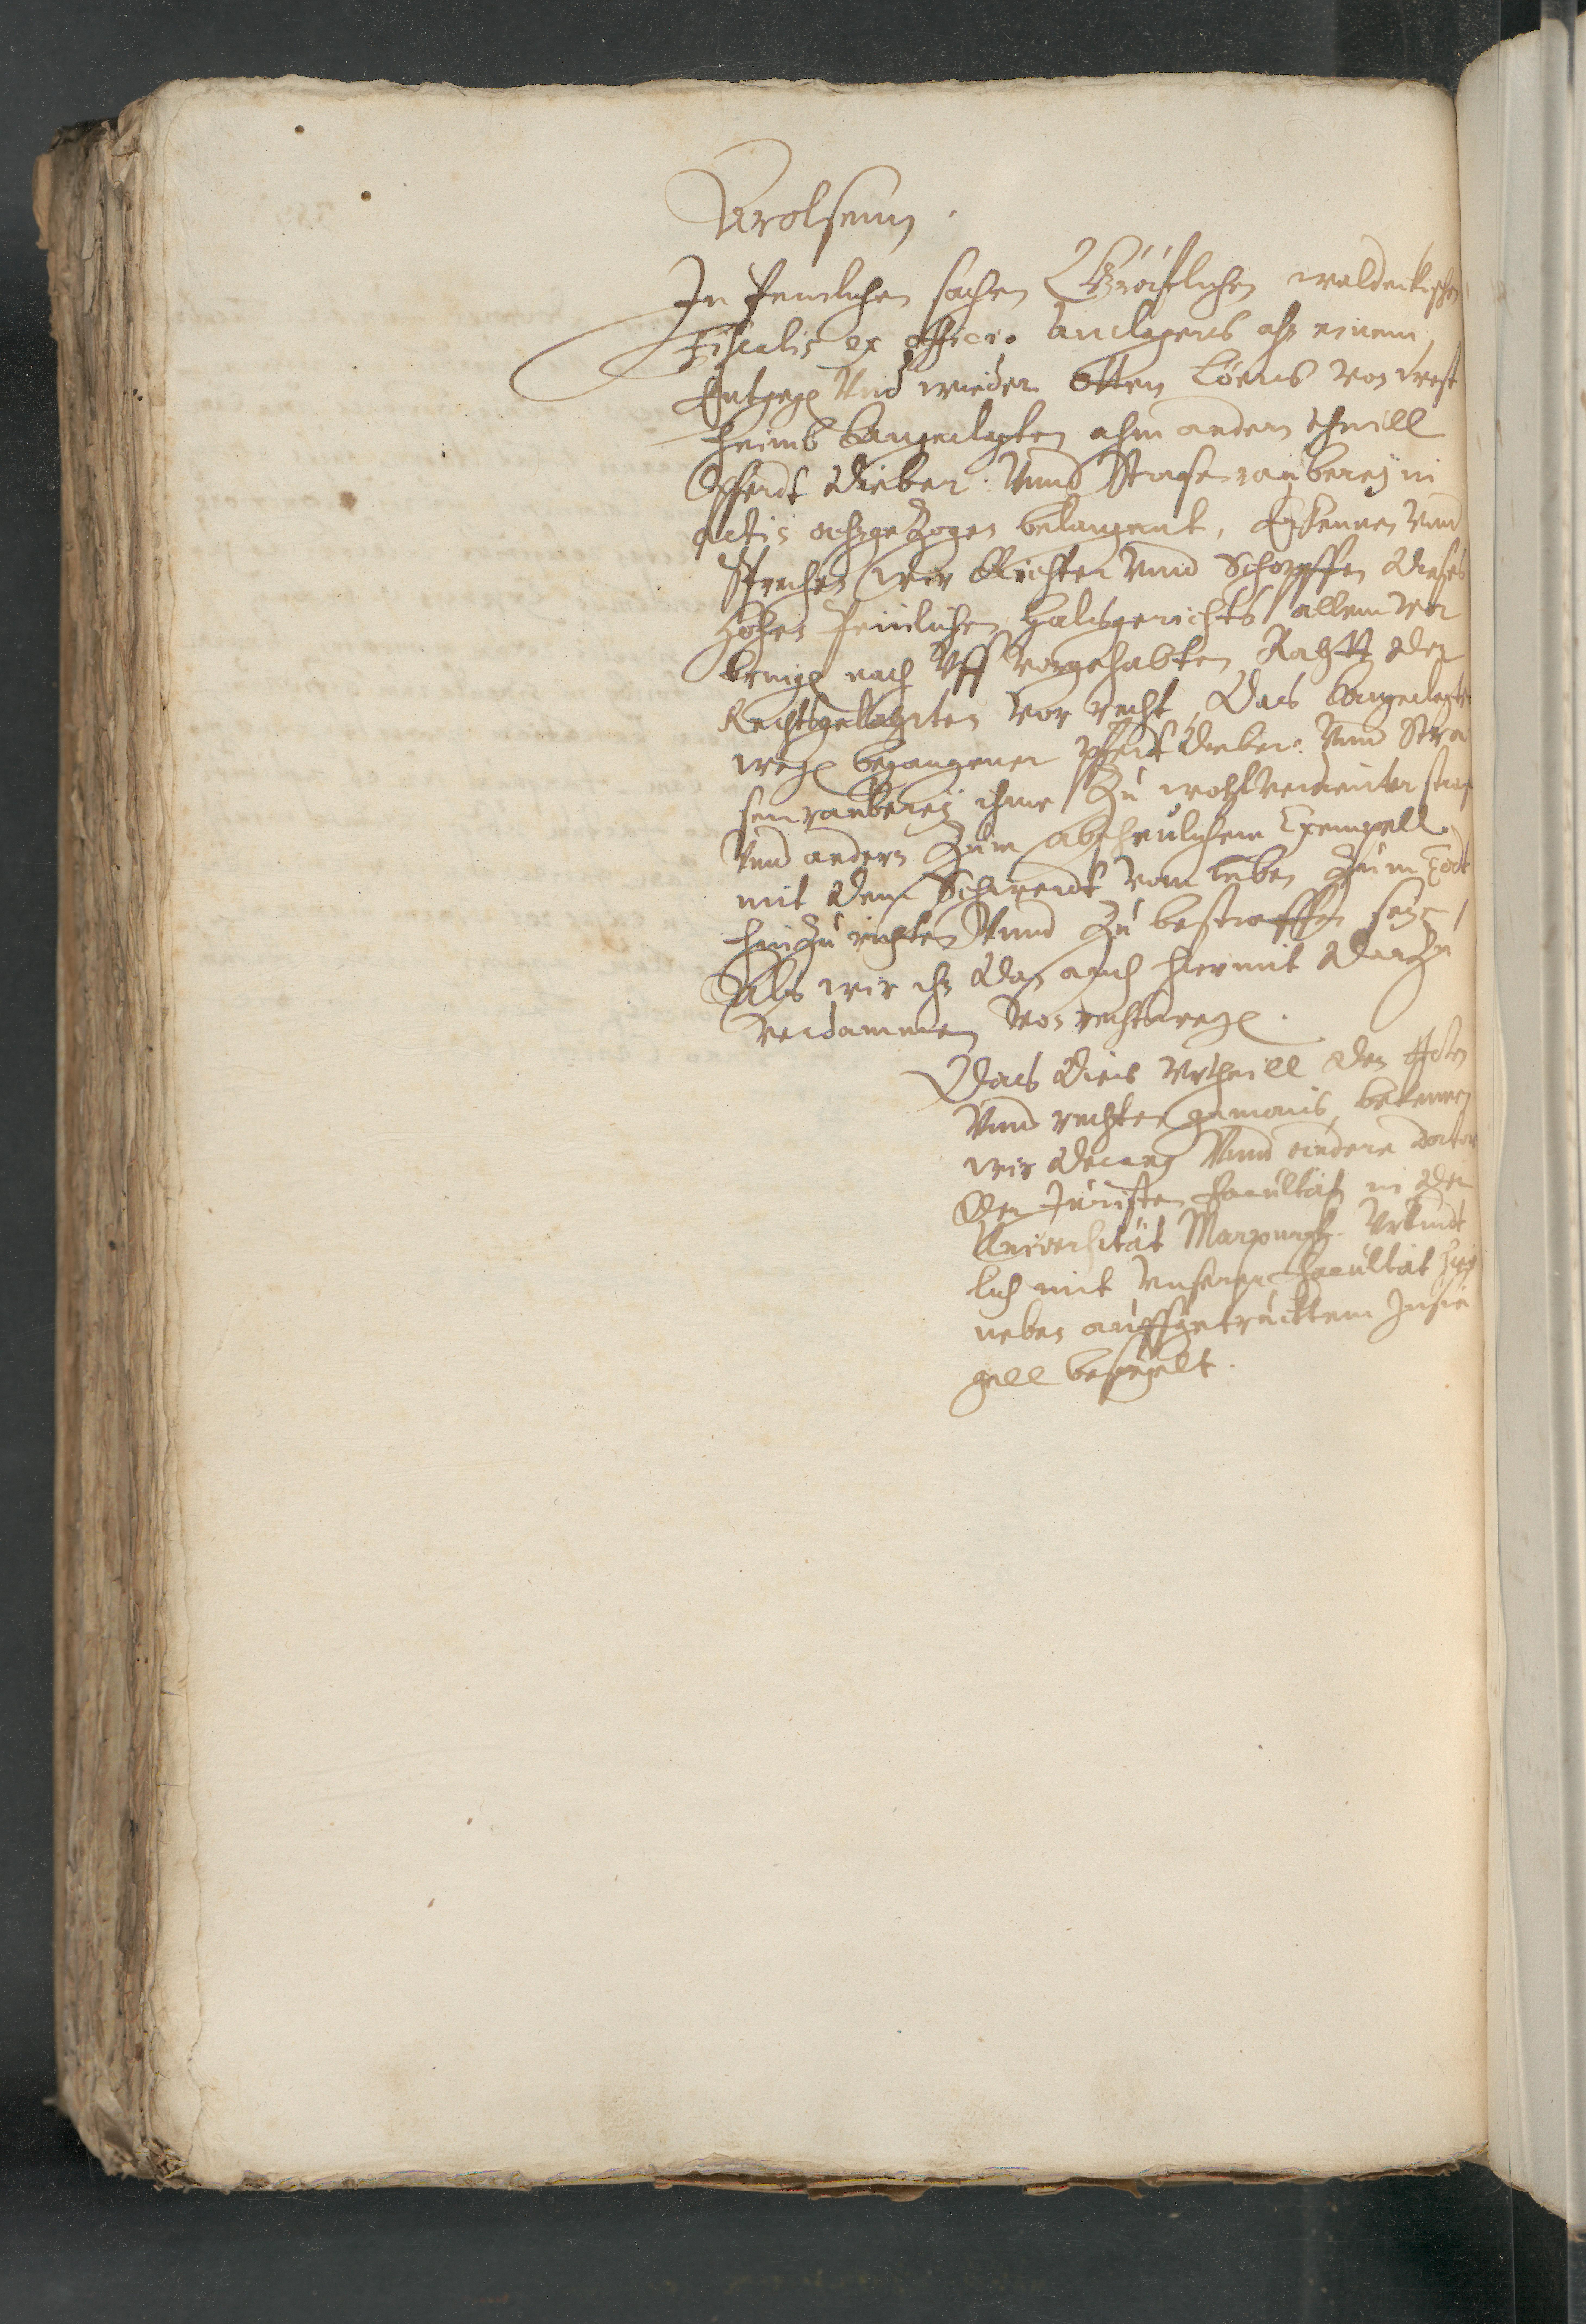 Arolsenn.
In Peinlichen sachen Gräflichen waldeckischen
Fiscalis ex officio Anclägers ahn einem,
Entgegen Vnd wieder Otten Löens von West
heimb Angeclagten ahm andern theill
Pferdt Dieber: Vnnd Strassenrauberey in
actis ahngezogen belangent, Erkennen Vnnd
Sprechen Wir Richter Vnnd Schöpffen dieses
Hohen Peinlichen Halsgerichts allem Vor
bringen nach Vff Vorgehabten Rahtt der
Rechtsgelahrten Vor recht, Das Angeclagter
wegen begangener Pferdt Dieber: Vnnd Stra
senrauberey ihme Zu wohlverdienter straf
Vnd andern Zum abscheulichem Exempell
mit dem Schwerdt vom leben Zum Todt
hinZurichten Vnnd Zu bestraffen sey,
Als wir ihn dan auch hiermit darZu
verdammen Von rechtswegen.
Das dies Vrtheill den Acten
Vnnd rechten gemäs, bekennen
wir Decanus Vnnd andere Doctores
der Juristen Facultät in der
Universität Marpurgk. Vrkundt
lich mit Vnserer Facultät hier
neben auffgetrücktem Insie
gell besiegelt.